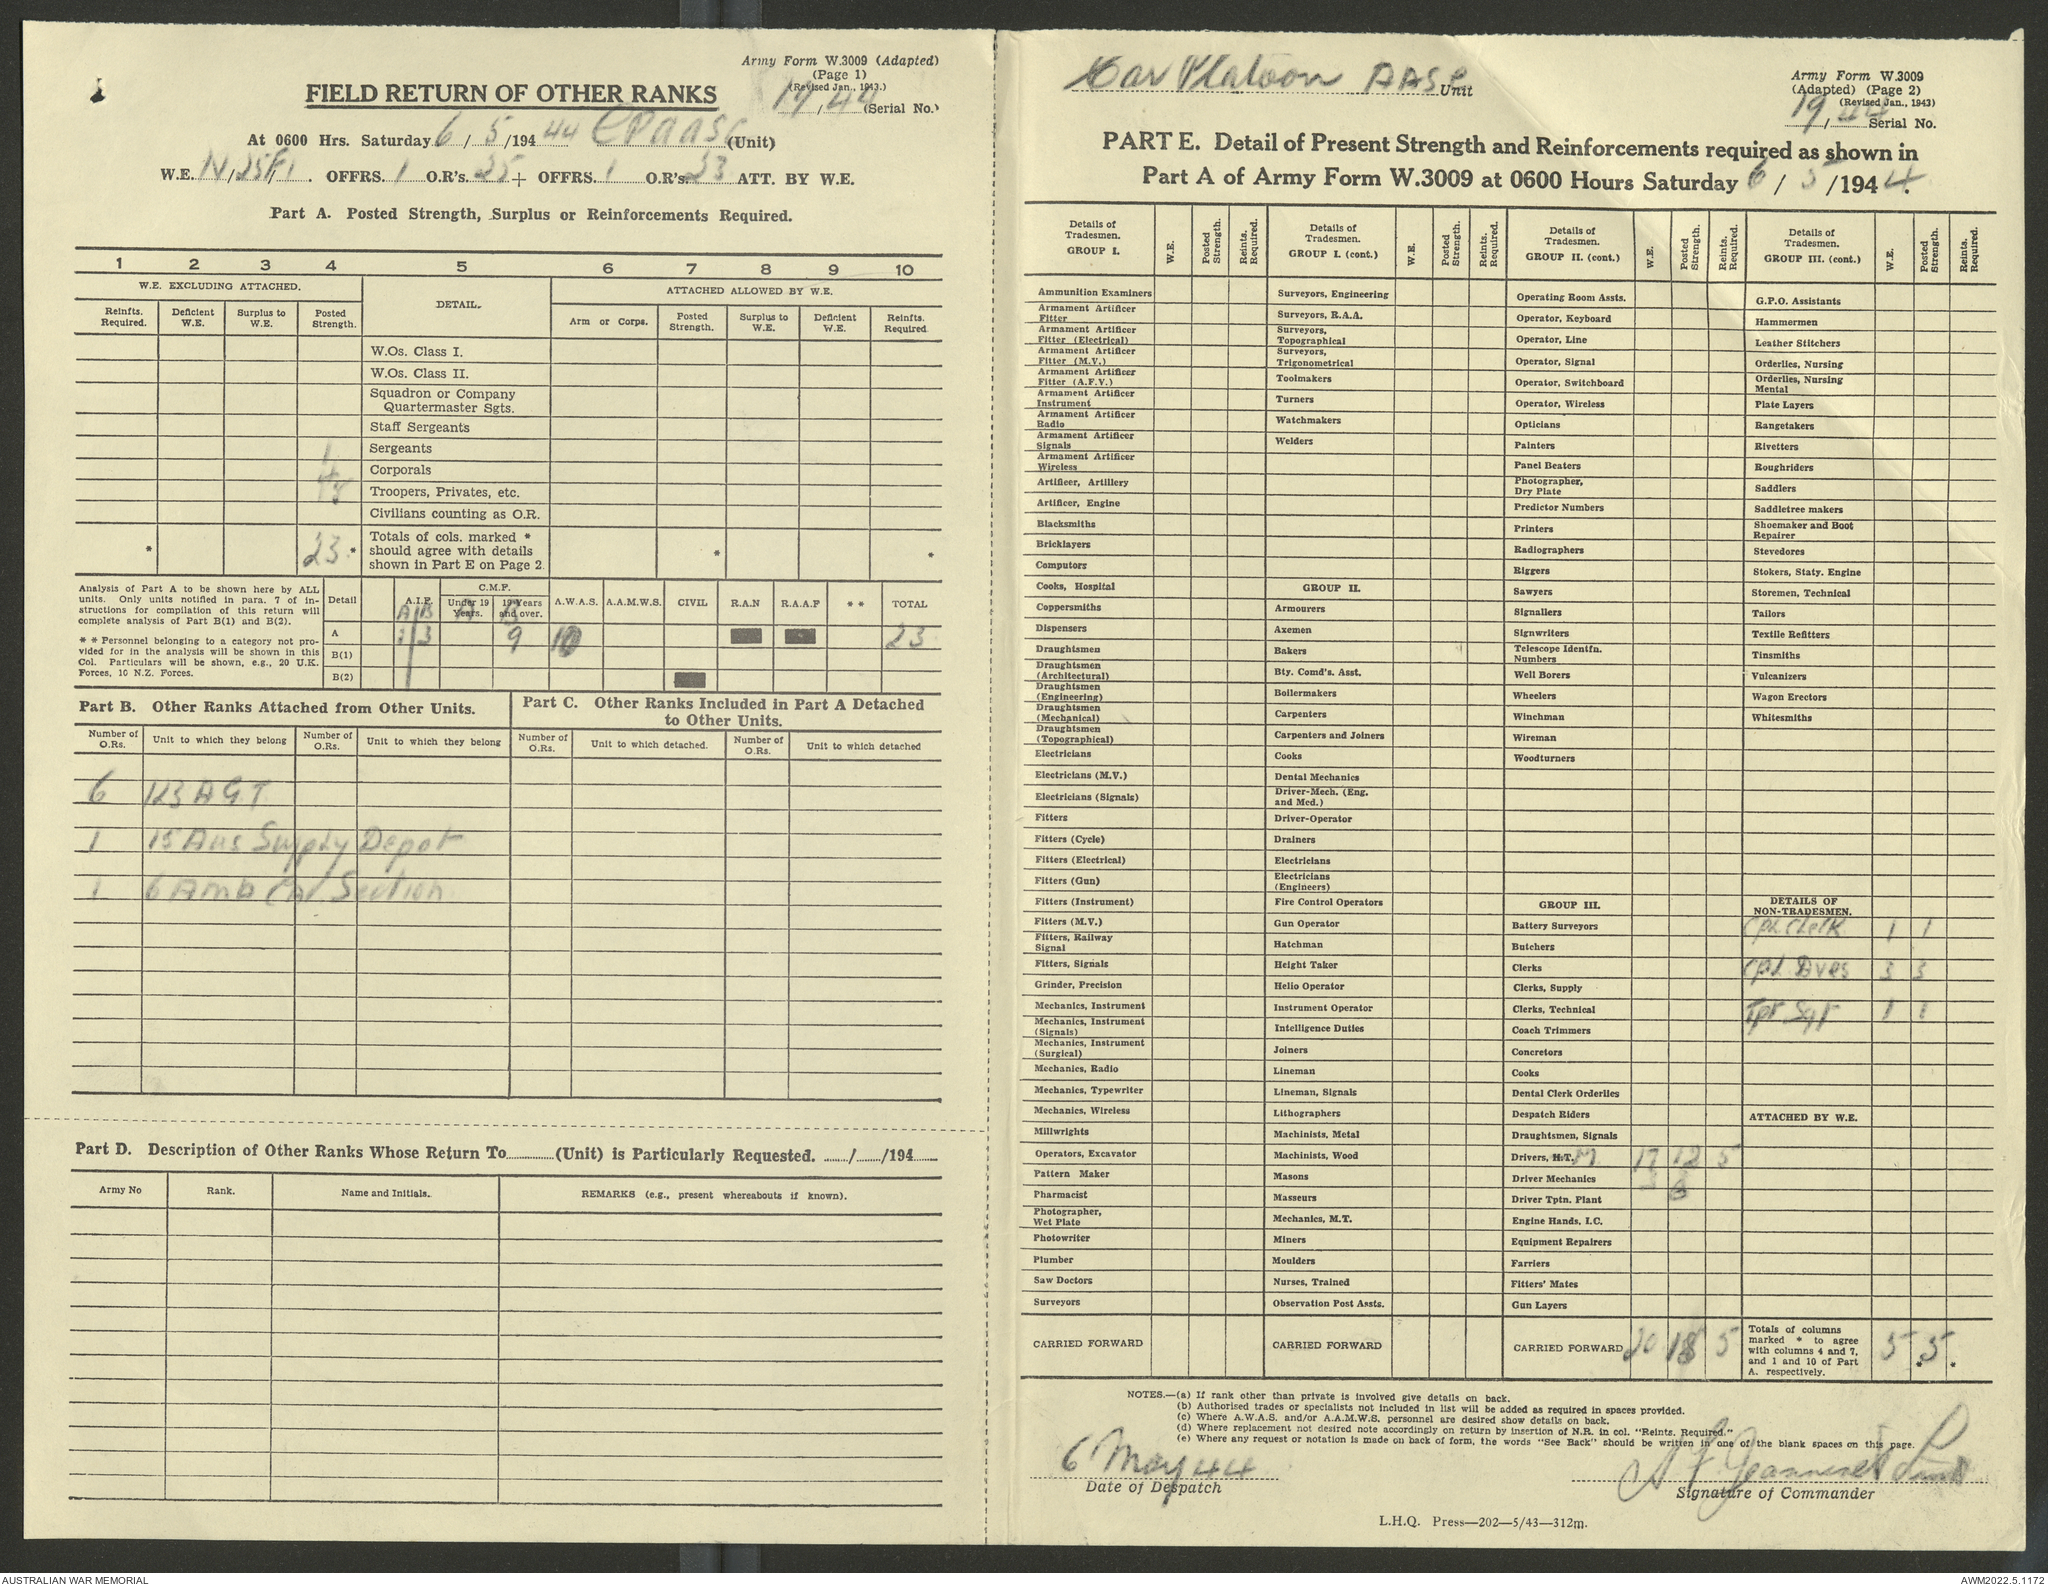 Army Form W.3009 (Adapted)
(Page 1)
(Revised Jan., 1943.)
FIELD RETURN OF OTHER RANKS
19/44 (Serial No.)
At 0600 Hrs. Saturday 6/5/194 44 CPAASC (Unit)
W.E. IV/25F/1. OFFRS. 1 O.R's. 25 + OFFRS. 1 O.R's. 23 ATT. BY W.E.
Part A. Posted Strength, Surplus or Reinforcements Required.
1 2 3 4 5 6 7 8 9 10
W.E. EXCLUDING ATTACHED. DETAIL. ATTACHED ALLOWED BY W.E.
Reinfts. Required. Deficient W.E. Surplus to W.E. Posted Strength. Arm or Corps. Posted Strength. Surplus to W.E. Deficient W.E. Reinfts. Required
W.Os. Class I.
W.Os. Class II.
Squadron or Company
Quartermaster Sgts.
Staff Sergeants
1 Sergeants
4 Corporals
18 Troopers, Privates, etc.
Civilians counting as O.R.
* 23 * Totals of cols. marked *
should agree with details * *
shown in Part E on Page 2.
Analysis of Part A to be shown here by ALL
units. Only units notified in para. 7 of in-
structions for compilation of this return will
complete analysis of Part B(1) and B(2).
* * Personnel belonging to a category not pro-
vided for in the analysis will be shown in this
Col. Particulars will be shown, e.g., 20 U.K.
Forces, 10 N.Z. Forces.
Detail A.I.F. C.M.F. Under 19 Years. 19 Years and over. A.W.A.S. A.A.M.W.S. CIVIL R.A.N R.A.A.F * * TOTAL
A B A B
A 1 3 9 10 23
B(1)
B(2)
Part B. Other Ranks Attached from Other Units.
Number of O.Rs. Unit to which they belong Number of O.Rs. Unit to which they belong
6 123 A G.T.
1 15 Aus Supply Depot
1 6 Amb Car Section
Part C. Other Ranks Included in Part A Detached
to Other Units.
Number of O.Rs. Unit to which detached. Number of O.Rs. Unit to which detached
Part D. Description of Other Ranks Whose Return To............(Unit) is Particularly Requested. ....../....../194......
Army No Rank. Name and Initials. REMARKS (e.g., present whereabouts if known).
Car Platoon AASC Unit
Army Form W.3009
(Adapted) (Page 2)
(Revised Jan., 1943)
19/44 Serial No.
PART E. Detail of Present Strength and Reinforcements required as shown in
Part A of Army Form W.3009 at 0600 Hours Saturday 6/5/1944.
Details of Tradesmen. GROUP I. W.E. Posted Strength. Reints. Required.
Ammunition Examiners
Armament Artificer Fitter
Armament Artificer Fitter (Electrical)
Armament Artificer Fitter (M.V.)
Armament Artificer Fitter (A.F.V.)
Armament Artificer Instrument
Armament Artificer Radio
Armament Artificer Signals
Armament Artificer Wireless
Artificer, Artillery
Artificer, Engine
Blacksmiths
Bricklayers
Computors
Cooks, Hospital
Coppersmiths
Dispensers
Draughtsmen
Draughtsmen (Architectural)
Draughtsmen (Engineering)
Draughtsmen (Mechanical)
Draughtsmen (Topographical)
Electricians
Electricians (M.V.)
Electricians (Signals)
Fitters
Fitters (Cycle)
Fitters (Electrical)
Fitters (Gun)
Fitters (Instrument)
Fitters (M.V.)
Fitters, Railway Signal
Fitters, Signals
Grinder, Precision
Mechanics, Instrument
Mechanics, Instrument (Signals)
Mechanics, Instrument (Surgical)
Mechanics, Radio
Mechanics, Typewriter
Mechanics, Wireless
Millwrights
Operators, Excavator
Pattern Maker
Pharmacist
Photographer, Wet Plate
Photowriter
Plumber
Saw Doctors
Surveyors
CARRIED FORWARD
Details of Tradesmen. GROUP I. (cont.) W.E. Posted Strength. Reints. Required.
Surveyors, Engineering
Surveyors, R.A.A.
Surveyors, Topographical
Surveyors, Trigonometrical
Toolmakers
Turners
Watchmakers
Welders
GROUP II.
Armourers
Axemen
Bakers
Bty. Comd's. Asst.
Boilermakers
Carpenters
Carpenters and Joiners
Cooks
Dental Mechanics
Driver-Mech. (Eng. and Med.)
Driver-Operator
Drainers
Electricians
Electricians (Engineers)
Fire Control Operators
Gun Operator
Hatchman
Height Taker
Helio Operator
Instrument Operator
Intelligence Duties
Joiners
Lineman
Lineman, Signals
Lithographers
Machinists, Metal
Machinists, Wood
Masons
Masseurs
Mechanics, M.T.
Miners
Moulders
Nurses, Trained
Observation Post Assts.
CARRIED FORWARD
Details of Tradesmen. GROUP II. (cont.) W.E. Posted Strength. Reints. Required.
Operating Room Assts.
Operator, Keyboard
Operator, Line
Operator, Signal
Operator, Switchboard
Operator, Wireless
Opticians
Painters
Panel Beaters
Photographer, Dry Plate
Predictor Numbers
Printers
Radiographers
Riggers
Sawyers
Signallers
Signwriters
Telescope Identfn. Numbers
Well Borers
Wheelers
Winchman
Wireman
Woodturners
GROUP III.
Battery Surveyors
Butchers
Clerks
Clerks, Supply
Clerks, Technical
Coach Trimmers
Concretors
Cooks
Dental Clerk Orderlies
Despatch Riders
Draughtsmen, Signals
Drivers, H.T. M 17 12 5
Driver Mechanics 3 6
Driver Tptn. Plant
Engine Hands, I.C.
Equipment Repairers
Farriers
Fitters' Mates
Gun Layers
CARRIED FORWARD 20 18 5
Details of Tradesmen. GROUP III. (cont.) W.E. Posted Strength. Reints. Required.
G.P.O. Assistants
Hammermen
Leather Stitchers
Orderlies, Nursing
Orderlies, Nursing Mental
Plate Layers
Rangetakers
Rivetters
Roughriders
Saddlers
Saddletree makers
Shoemaker and Boot Repairer
Stevedores
Stokers, Staty. Engine
Storemen, Technical
Tailors
Textile Refitters
Tinsmiths
Vulcanizers
Wagon Erectors
Whitesmiths
DETAILS OF NON-TRADESMEN.
Cpl Clerk 1 1
Cpl Dvrs 3 3
Tpt Sgt 1 1
ATTACHED BY W.E.
Totals of columns marked * to agree with columns 4 and 7, and 1 and 10 of Part A. respectively. 5 * 5 *
NOTES.—(a) If rank other than private is involved give details on back.
(b) Authorised trades or specialists not included in list will be added as required in spaces provided.
(c) Where A.W.A.S. and/or A.A.M.W.S. personnel are desired show details on back.
(d) Where replacement not desired note accordingly on return by insertion of N.R. in col. "Reints. Required."
(e) Where any request or notation is made on back of form, the words "See Back" should be written in one of the blank spaces on this page.
6 May 44
Date of Despatch
Signature of Commander
L.H.Q. Press—202—5/43—312m.
AUSTRALIAN WAR MEMORIAL
AWM2022.5.1172